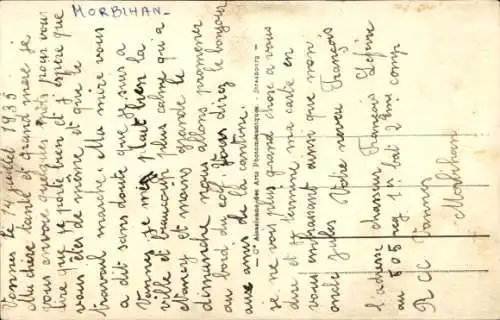 MORBIHAN
Vannes le 14 juillet 1935
Ma chère tante et grand mère je
vous envoie quelques mots pour vous
dire que je me porte bien et j espère que
vous êtes de même et que le
travail marche. Ma mère vous
a dit sans doute que je suis a
Vannes je me plait bien la
ville et beaucoup plus calme qui a
Nancy et moins grande le
dimanche nous allons promener
au bord du Vous direz le bonjour
aux amis de la cantine.
je ne vous plus grand chose a vous
dire et je termine ma carte en
vous embrassant ainsi que mon
oncle Jules Votre neveu François
l'adresse chasseur François
au 505 reg 1er bat 2ème comp
R C C Vannes
Morbihan
Cie Alsacienne des Arts Photomécaniques - Strasbourg